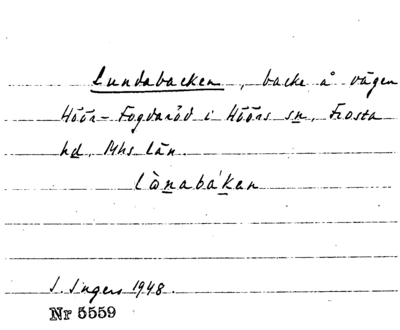 Lundabacken, backe å vägen
Höör-Fogdaröd i Höörs sn, Frosta
hd, Mhs län.
lònabáken
I. Ingers 1948.
Nr 5559